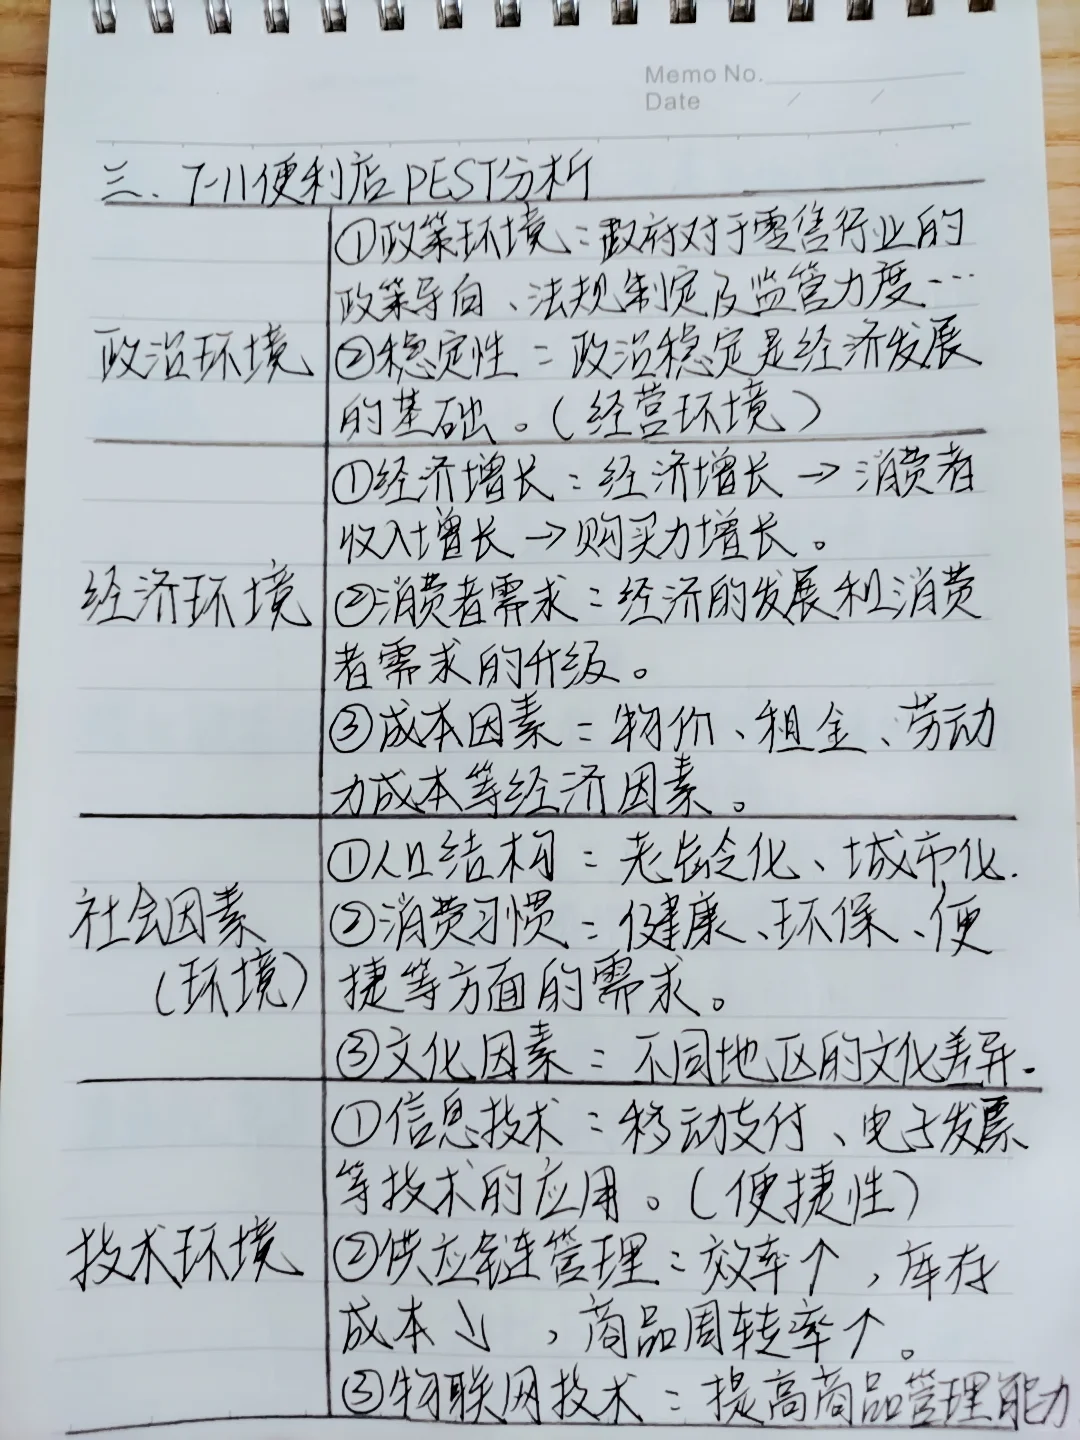 Memo No.
Date / /
三、7-11便利店PEST分析
①政策环境：政府对于零售行业的
政策导向、法规制定及监管力度…
政治环境
②稳定性：政治稳定是经济发展
的基础。（经营环境）
①经济增长：经济增长→消费者
收入增长→购买力增长。
经济环境
②消费者需求：经济的发展和消费
者需求的升级。
③成本因素：物价、租金、劳动
力成本等经济因素。
①人口结构：老龄化、城市化.
社会因素
（环境）
②消费习惯：健康、环保、便
捷等方面的需求。
③文化因素：不同地区的文化差异.
①信息技术：移动支付、电子发票
等技术的应用。（便捷性）
技术环境
②供应链管理：效率↑，库存
成本↓，商品周转率↑。
③物联网技术：提高商品管理能力